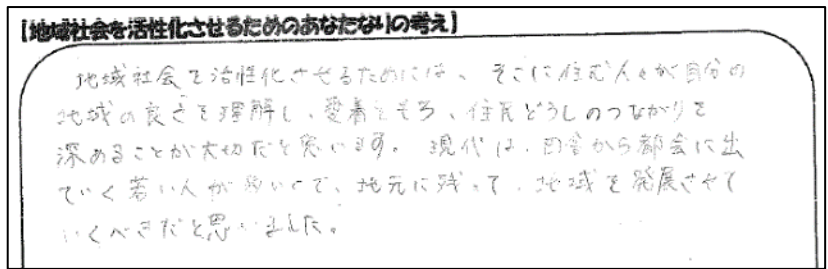 【地域社会を活性化させるためのあなたなりの考え】
地域社会を活性化させるためには、そこに住む人々が自分の
地域の良さを理解し、愛着をもち、住民どうしのつながりを
深めることが大切だと思います。現代は、田舎から都会に出
ていく若い人が多いので、地元に残って、地域を発展させて
いくべきだと思いました。